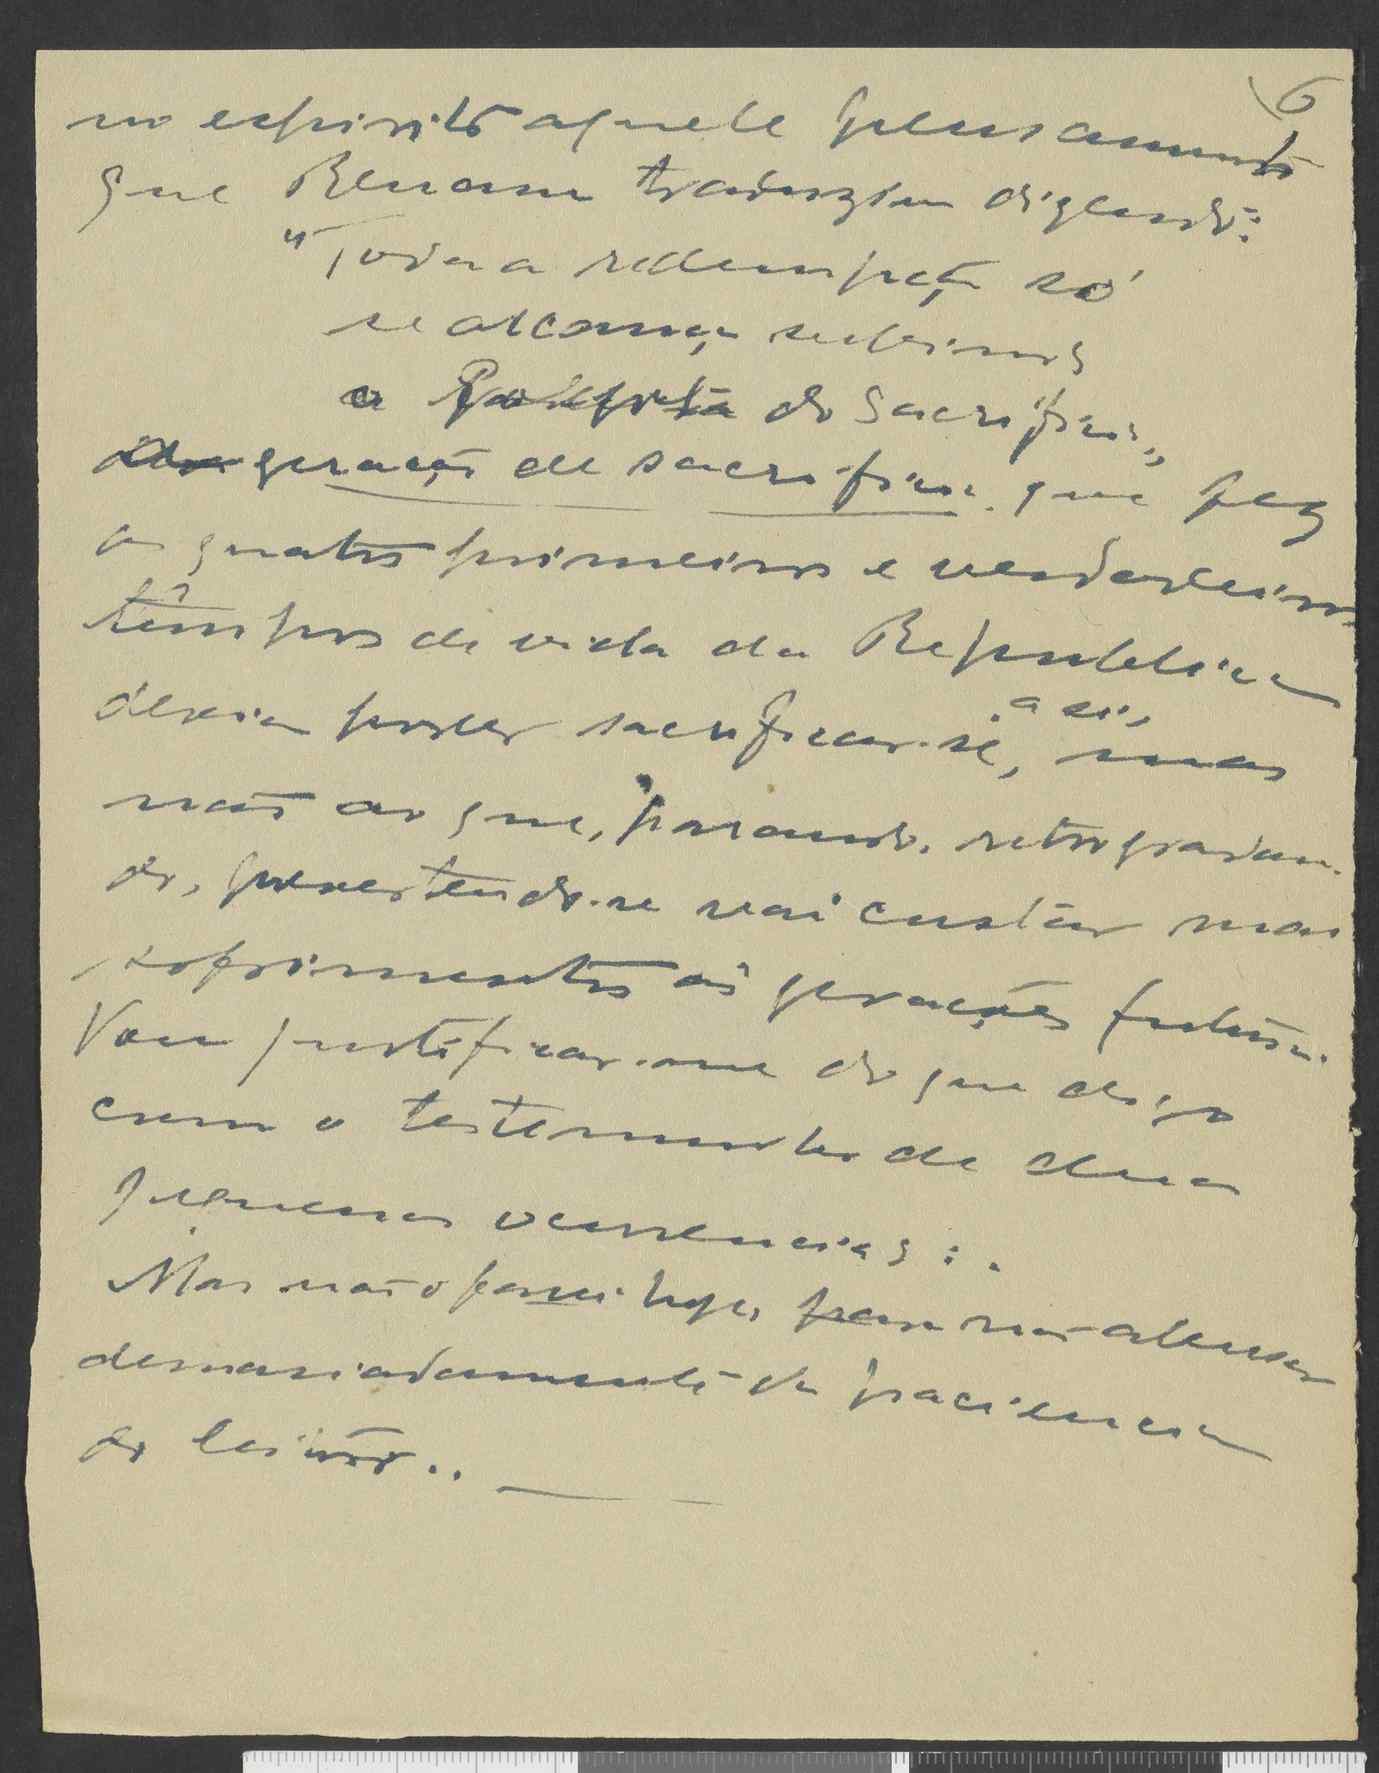 6
no espirito aquele pensamento
que Renan traduziu dizendo:
"Toda a redempção só
se alcança subindo
o do Sacrificio"
geração de sacrificio que fez
os quatro primeiros e verdadeiros
têmpos de vida da Republica
devia poder sacrificar-se, a si, mas
não ao que, parando, retrogradan-
do, pervertendo-se vai custar mais
sofrimentos ás gerações futuras.
Vou justificar-me do que digo
com o testemunho de duas
pequenas ocurrencias:.
Mas não o farei hoje, para não abusar
demasiadamente da paciencia
do leitor..